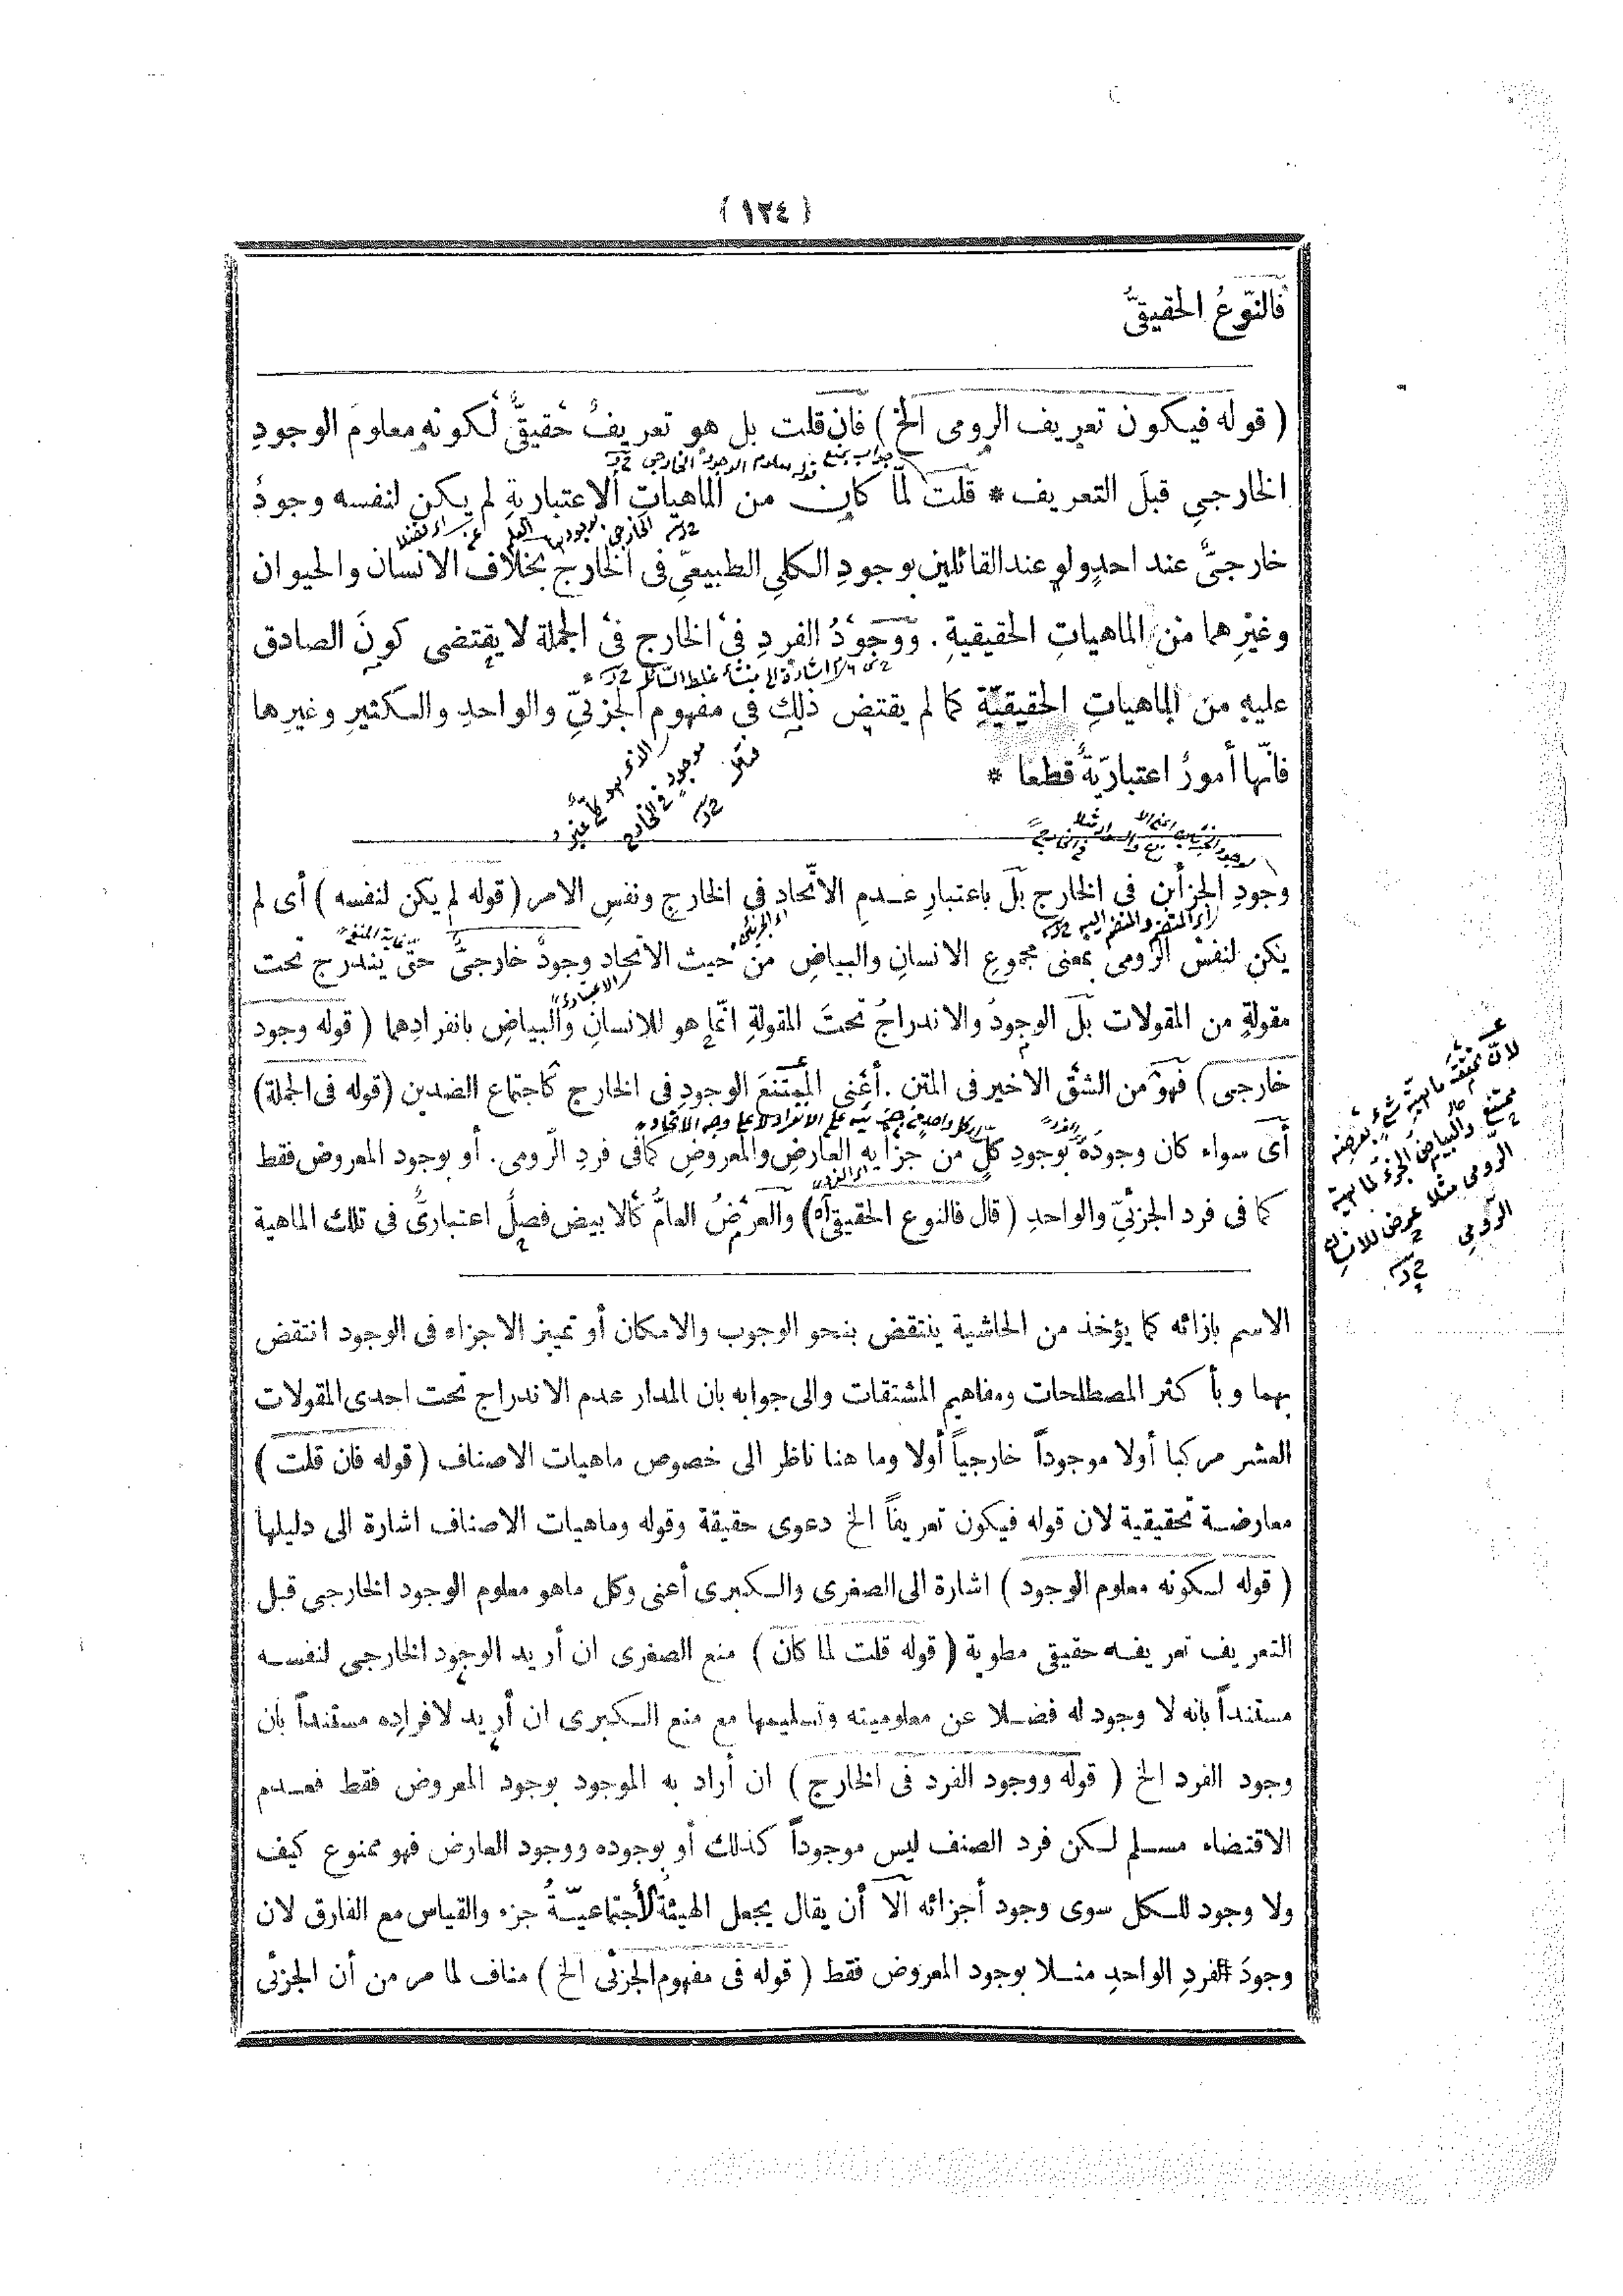 ( ١٢٤ )
فالنّوعُ الحقيقيُّ
( قوله فيكون تعريف الرومى الخ ) فان قلت بل هو تعريفٌ حقيقيٌّ لكونه معلوم الوجودِ
جواب بمنع قوله معلوم الوجود الخارجى
الخارجىِ قبلَ التعريف * قلت لمّا كان من الماهياتِ الاعتباريةِ لم يكن لنفسه وجودٌ
خارجىٌّ عند احدٍ ولو عند القائلين بوجودِ الكلىِ الطبيعىِّ فى الخارج بخلاف الانسان والحيوان
وغيْرِهما من الماهياتِ الحقيقيةِ . ووجودُ الفردِ فى الخارج فى الجملة لا يقتضى كونَ الصادق
اشارة الى منشأ غلط السائل
عليه من الماهياتِ الحقيقيّةِ كما لم يقتض ذلك فى مفهوم الجزئىِّ والواحدِ والكثيرِ وغيرِها
فانّها أمورٌ اعتباريّةٌ قطعا *
وجودِ الجزأين فى الخارج بل باعتبارِ عدمِ الاتّحاد فى الخارج ونفسِ الامر ( قوله لم يكن لنفسه ) أى لم
يكن لنفسْ الرّومى بمعنى مجموع الانسانِ والبياضِ من حيث الاتحاد وجودٌ خارجىٌّ حتى يندرج تحت
مقولةٍ من المقولات بل الوجودُ والاندراجُ تحتَ المقولةِ انّما هو للانسانِ والبياضِ بانفرادِهما ( قوله وجود
خارجى ) فهو من الشقّ الاخير فى المتن . أعنى الممتنعَ الوجودِ فى الخارج كاجتماع الضدين ( قوله فى الجملة )
أى سواء كان وجودَهُ بوجودِ كلٍّ من جزأيه العارضِ والمعروضِ كما فى فردِ الرّومى . أو بوجود المعروض فقط
كما فى فرد الجزئىِّ والواحدِ ( قال فالنوع الحقيقى آه ) والعرَضُ العامُّ كالابيض فصلٌ اعتبارىٌّ فى تلك الماهية
لانّ تحقّق ماهيّة شىء بعرضه
ممتنع والبياض الجزء لماهية
الرّومى مثلا عرض للانسان
الرّومى
الاسم بازائه كما يؤخذ من الحاشية ينتقض بنحو الوجوب والامكان أو تمييز الاجزاء فى الوجود انتقض
بهما وبأ كثر المصطلحات ومفاهيم المشتقات والى جوابه بان المدار عدم الاندراج تحت احدى المقولات
العشر مركبا أولا موجوداً خارجياً أولا وما هنا ناظر الى خصوص ماهيات الاصناف ( قوله فان قلت )
معارضة تحقيقية لان قوله فيكون تعريفاً الخ دعوى حقيقة وقوله وماهيات الاصناف اشارة الى دليلها
( قوله لكونه معلوم الوجود ) اشارة الى الصغرى والكبرى أعنى وكل ماهو معلوم الوجود الخارجى قبل
التعريف تعريفه حقيقى مطوية ( قوله قلت لما كان ) منع الصغرى ان أريد الوجود الخارجى لنفسه
مستنداً بانه لا وجود له فضلا عن معلوميته وتسليمها مع منع الكبرى ان أريد لافراده مستنداً بان
وجود الفرد الخ ( قوله ووجود الفرد فى الخارج ) ان أراد به الموجود بوجود المعروض فقط فعدم
الاقتضاء مسلم لكن فرد الصنف ليس موجوداً كذلك أو بوجوده ووجود العارض فهو ممنوع كيف
ولا وجود للكل سوى وجود أجزائه الا أن يقال بجعل الهيئة الاجتماعيّةُ جزء والقياس مع الفارق لان
وجودَ الفردِ الواحدِ مثلا بوجود المعروض فقط ( قوله فى مفهوم الجزئى الخ ) مناف لما مر من أن الجزئى